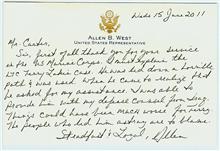 Weds 15 June 2011
ALLEN B. WEST
UNITED STATES REPRESENTATIVE
Mr. Carter,
Sir, first of all thank you for your service
in the US Marine Corps. I must explain the
LTC Terry Lakin Case. He was led down a horrible
path and was used. When he came to realize that
he asked for my assistance. I was able to
provide him with my defense counsel from Iraq.
Things could have been much worse for Terry.
The people who led him astray are to blame.
Steadfast & Loyal, Allen